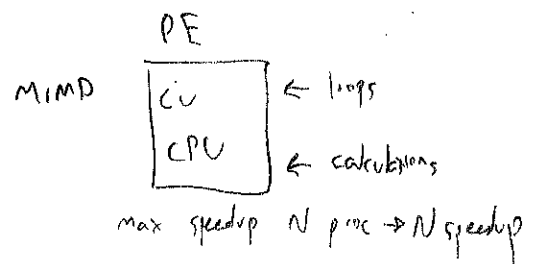 PE
MIMD
CU ← loops
CPU ← calculations
max speedup N proc → N speedup